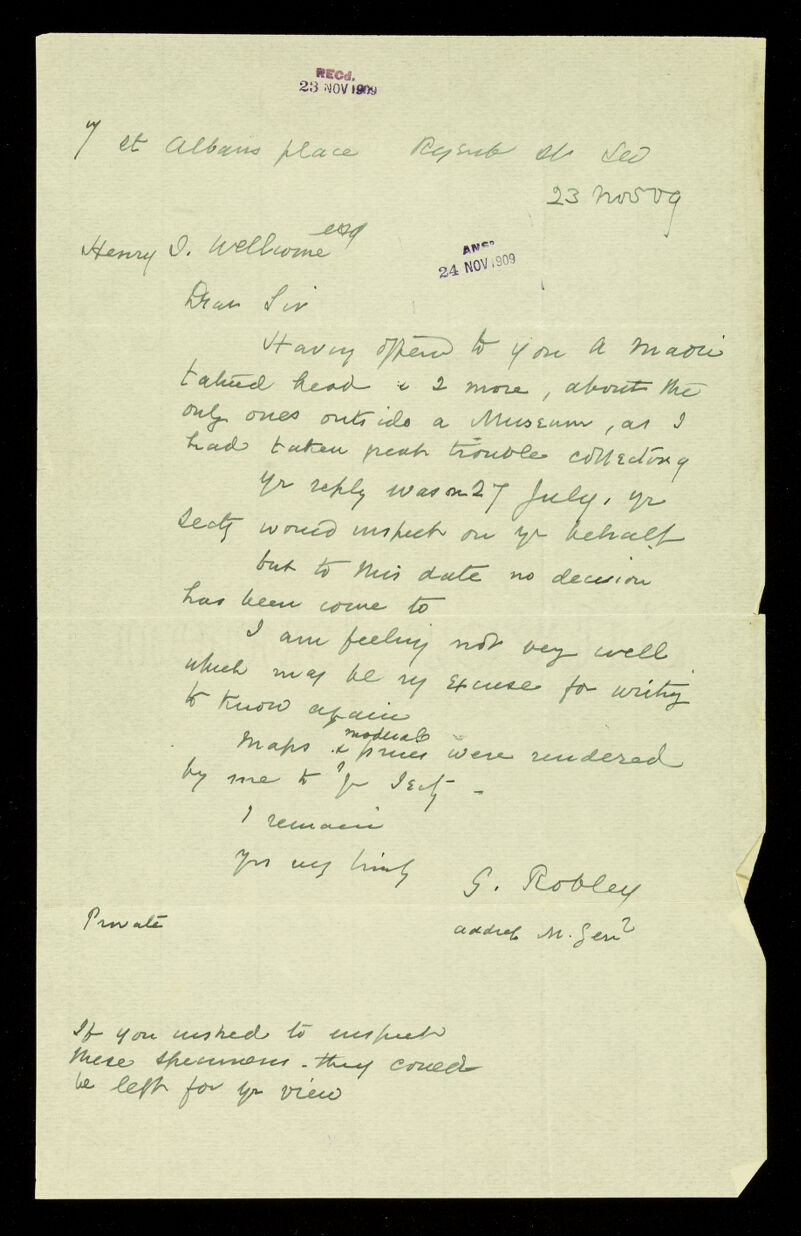 RECd.
23 NOV 1909
7 St Albans place Regent St SW
23 Nov 09
Henry S. Wellcome esq
ANSD
24 NOV 1909
Dear Sir
Having offered to you a Maori
tatued head & 2 more, about the
only ones outside a Museum, as I
had taken great trouble collecting
yr reply was on 27 July, yr
Secty would inspect on yr behalf
but to this date no decision
has been come to
I am feeling not very well
which may be my excuse for writing
to know again
Maps & moderate prices were rendered
by me to yr Secty -
I remain
Yrs very truly
G. Robley
Private
address M. Genl
If you wished to inspect
these specimens - they could
be left for yr view